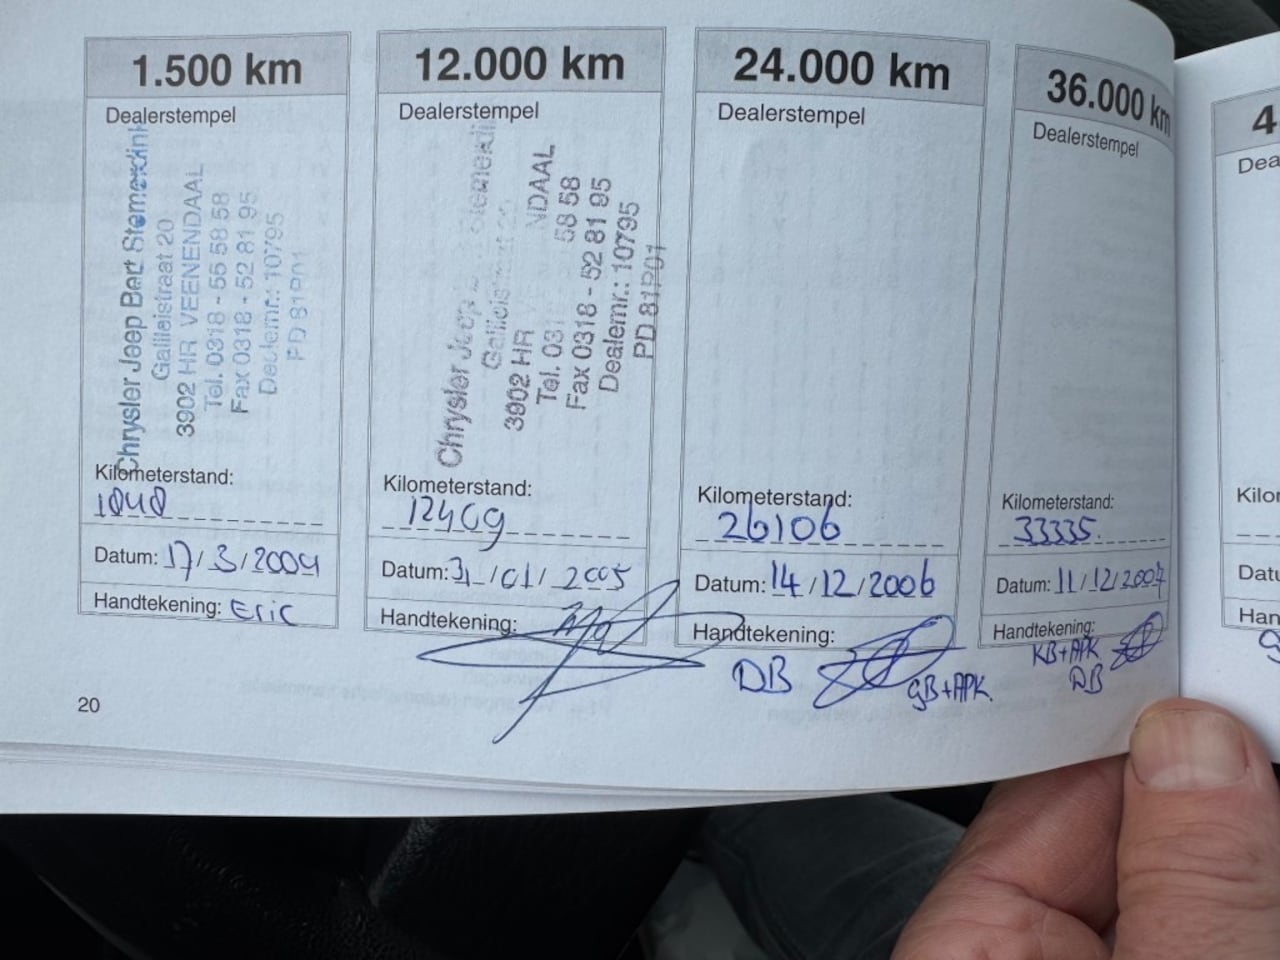 1.500 km
Dealerstempel
Chrysler Jeep Bert Stemerdink
Galileistraat 20
3902 HR VEENENDAAL
Tel. 0318 - 55 58 58
Fax 0318 - 52 81 95
Dealernr.: 10795
PD 81R01
Kilometerstand:
1848
Datum: 17/3/2004
Handtekening: Eric
12.000 km
Dealerstempel
Chrysler Jeep
3902 HR NDAAL
Tel. 031 58 58
Fax 0318 - 52 81 95
Dealernr.: 10795
PD 81R01
Kilometerstand:
12409
Datum: 31/01/2005
Handtekening:
24.000 km
Dealerstempel
Kilometerstand:
26106
Datum: 14/12/2006
Handtekening:
DB
GB+APK.
36.000 km
Dealerstempel
Kilometerstand:
33335.
Datum: 11/12/2007
Handtekening:
KB+APK
DB
4
Dea
Kilo
Datu
Han
20